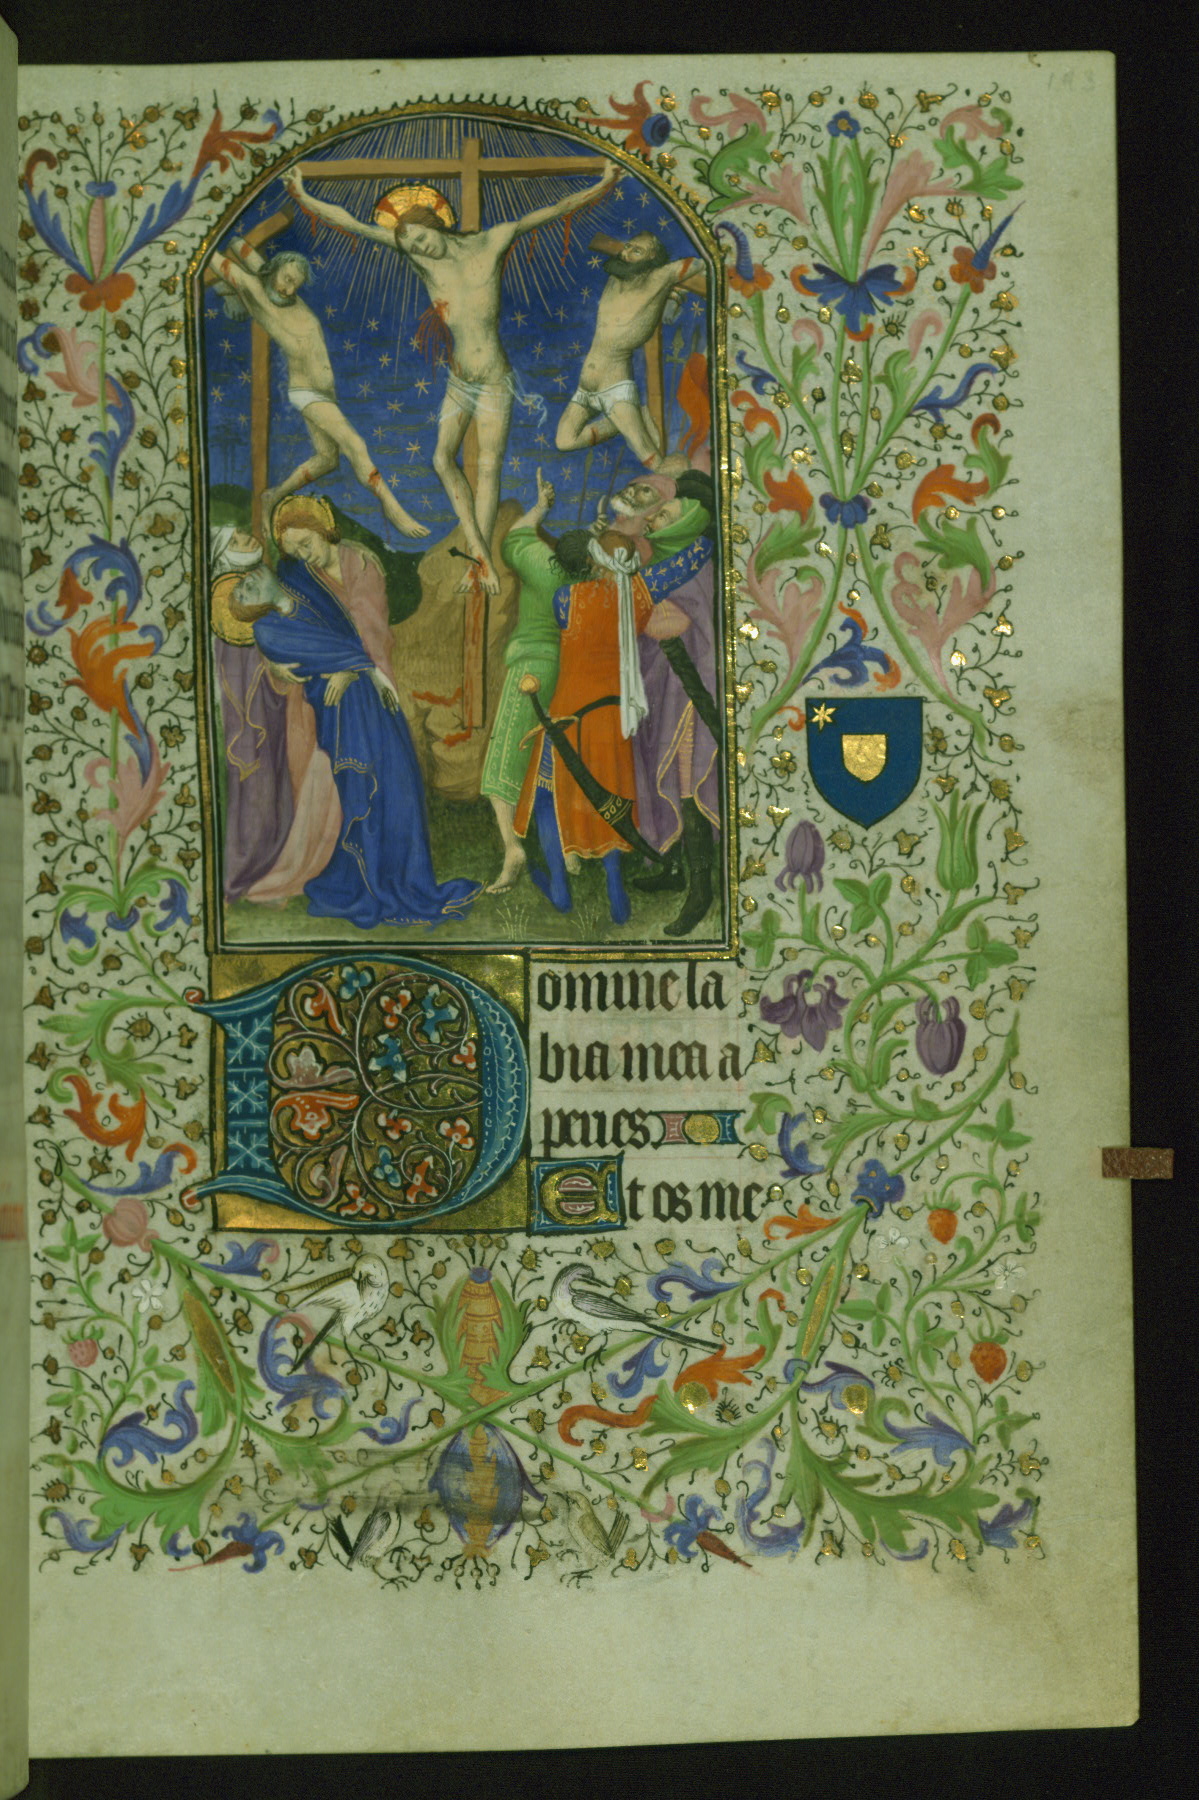 Domine la
bia mea a
peries
Et os me